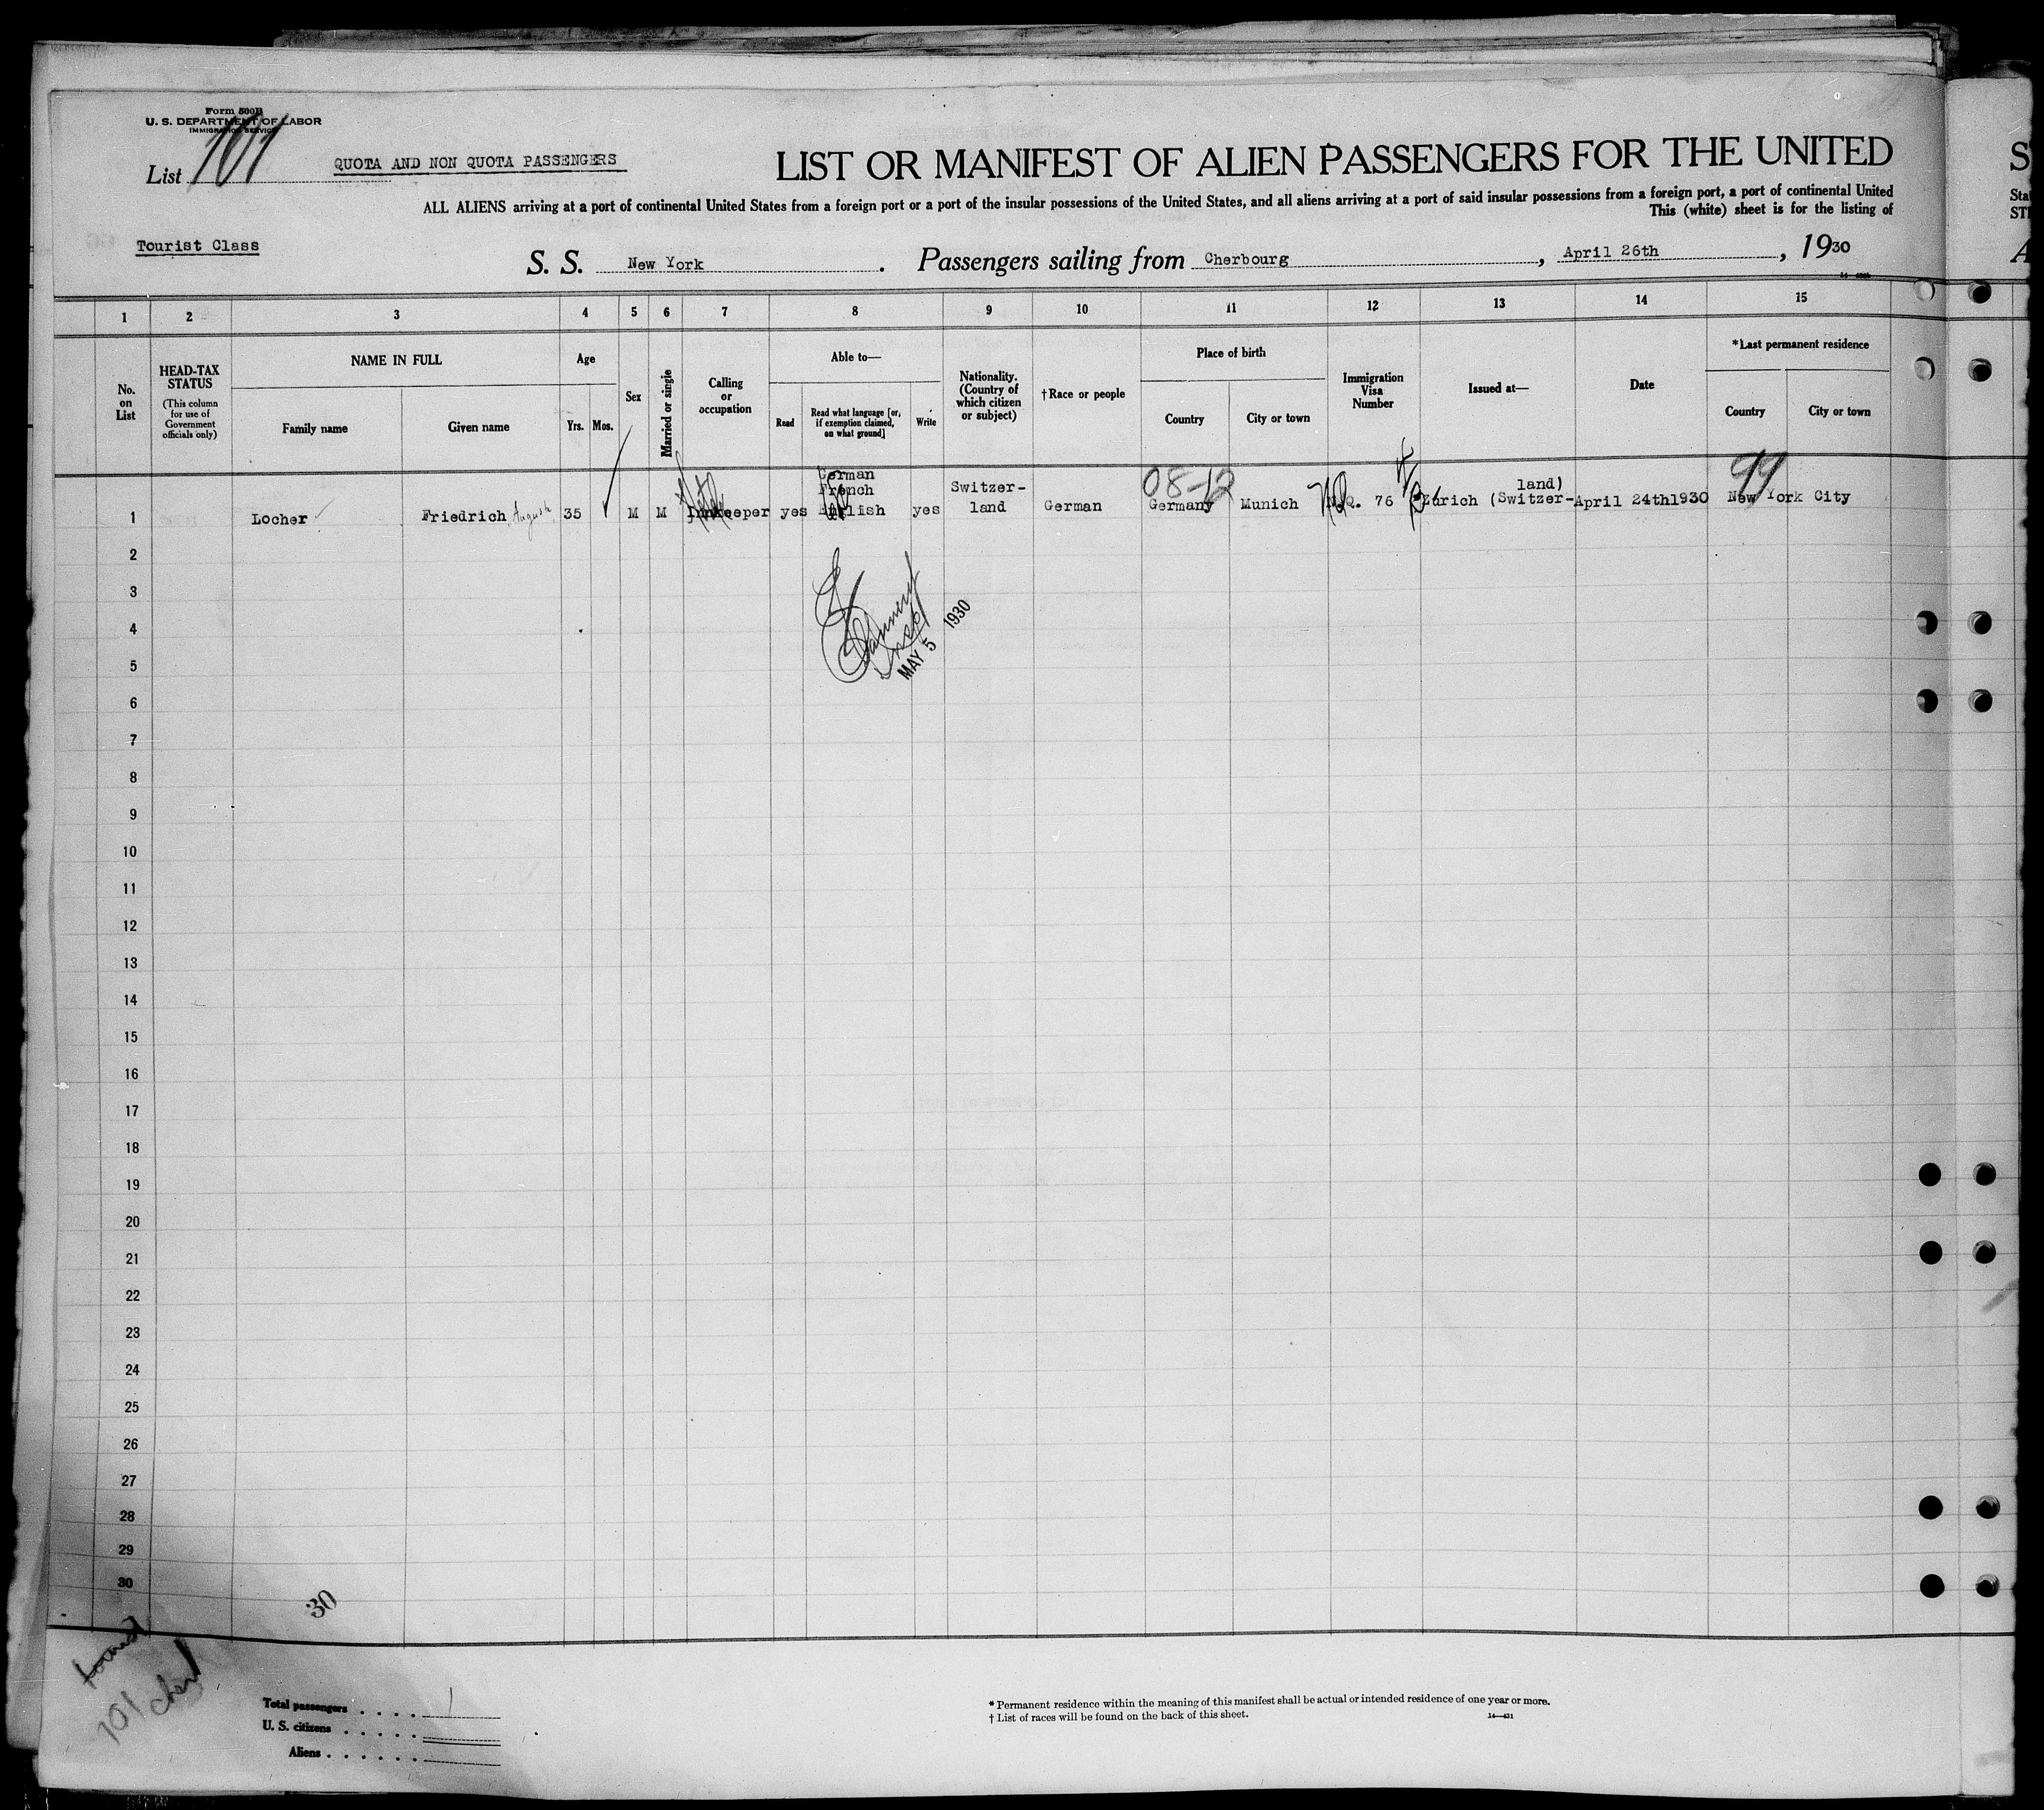 Form 500B
U. S. DEPARTMENT OF LABOR
IMMIGRATION SERVICE
List 101
QUOTA AND NON QUOTA PASSENGERS
LIST OR MANIFEST OF ALIEN PASSENGERS FOR THE UNITED
S
ALL ALIENS arriving at a port of continental United States from a foreign port or a port of the insular possessions of the United States, and all aliens arriving at a port of said insular possessions from a foreign port, a port of continental United
This (white) sheet is for the listing of
Tourist Class
S. S. New York. Passengers sailing from Cherbourg, April 26th, 1930
1 2 3 4 5 6 7 8 9 10 11 12 13 14 15
No. on List
HEAD-TAX STATUS
(This column for use of Government officials only)
NAME IN FULL
Family name
Given name
Age
Yrs. Mos.
Sex
Married or single
Calling or occupation
Able to—
Read
Read what language [or, if exemption claimed, on what ground]
Write
Nationality. (Country of which citizen or subject)
†Race or people
Place of birth
Country
City or town
Immigration Visa Number
Issued at—
Date
*Last permanent residence
Country
City or town
08-12
99
1 Locher Friedrich August 35 M M Innkeeper yes German French English yes Switzer-land German Germany Munich N.Q. 76 Zürich (Switzer-land) April 24th1930 New York City
2
3
4
5
MAY 5 1930
6
7
8
9
10
11
12
13
14
15
16
17
18
19
20
21
22
23
24
25
26
27
28
29
30
30
101 cher
Total passengers . . . . 1
U. S. citizens . . . . .
Aliens . . . . . .
* Permanent residence within the meaning of this manifest shall be actual or intended residence of one year or more.
† List of races will be found on the back of this sheet.
14—431